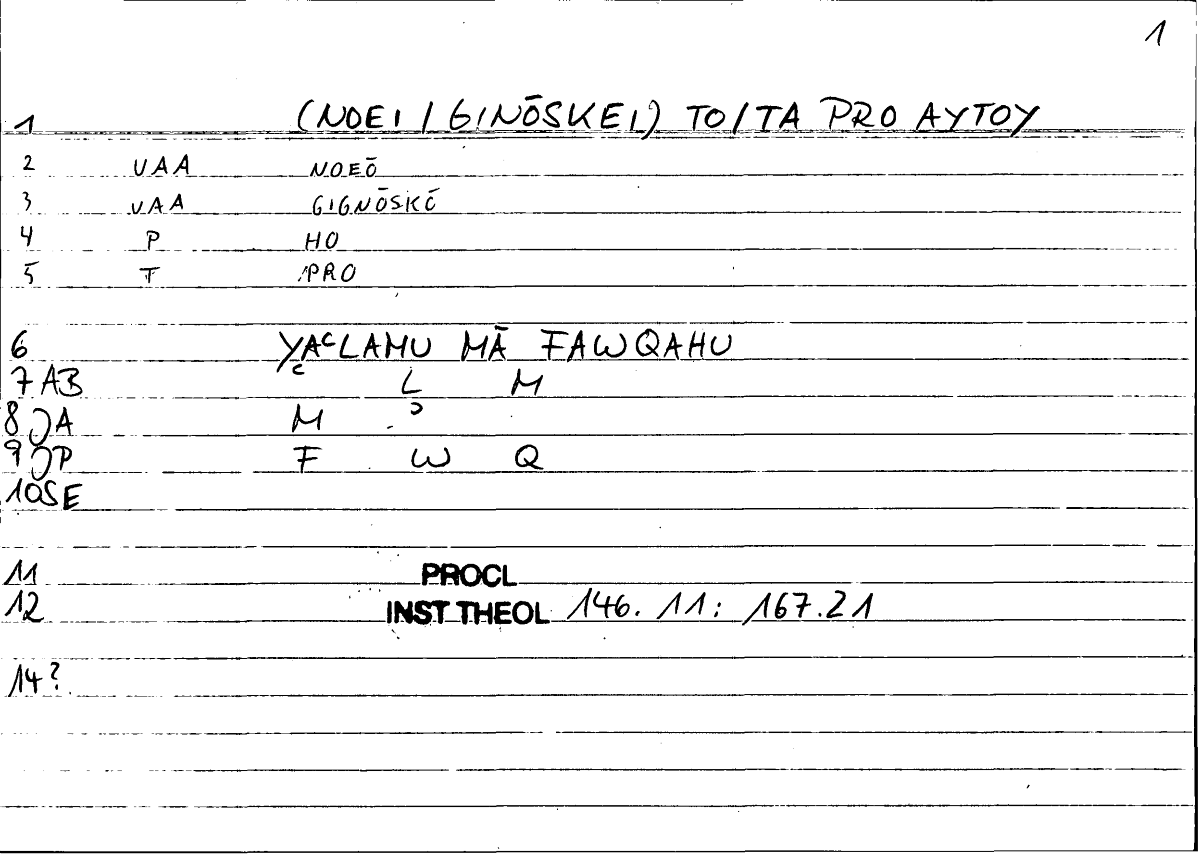 1
1 (NOEI / GINŌSKEI) TO/TA PRO AYTOY
2 VAA NOEŌ
3 VAA GIGNŌSKŌ
4 P HO
5 T PRO
6 YAʿLAMU MĀ FAWQAHU
7 AB ʿ L M
8 JA M ʾ
9 JP F W Q
10 SE
11 PROCL
12 INST THEOL 146. 11: 167.21
14?